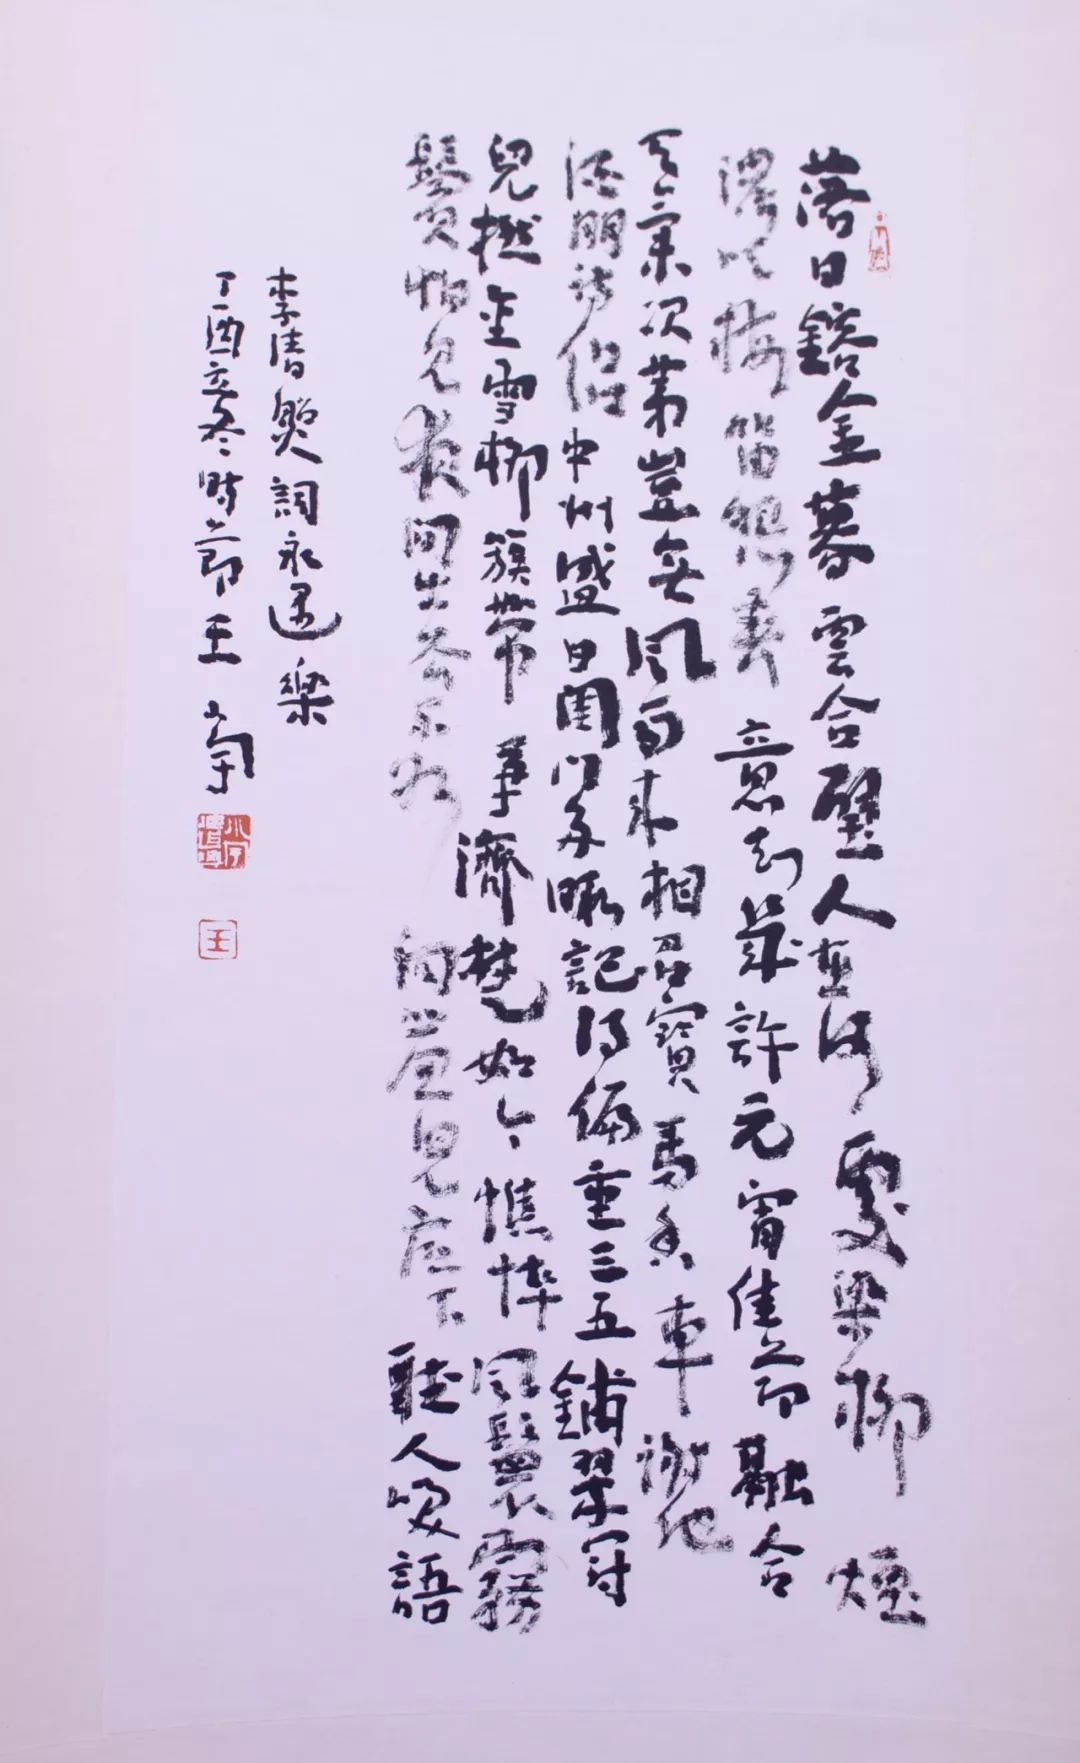 落日鎔金暮雲合璧人在何處染柳煙
濃吹梅笛怨春意知幾許元宵佳節融合
天氣次第豈無風雨來相召寶馬香車謝他
酒朋詩侶中州盛日閨門多暇記得偏重三五鋪翠冠
兒撚金雪柳簇帶爭濟楚如今憔悴風鬟霧
鬢怕見夜間出去不如向簾兒底下聽人咲語
李清照詞永遇樂
丁酉立冬時節王
王